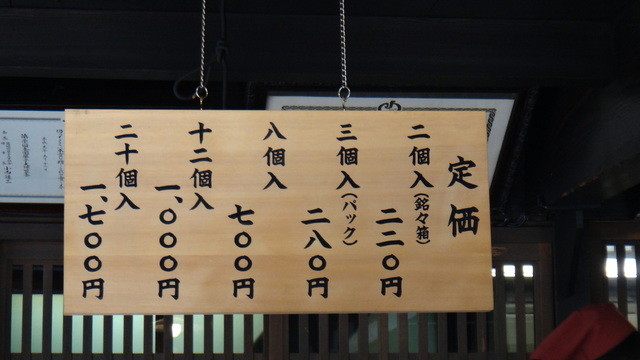 定価
二個入(銘々箱)
二二〇円
三個入(パック)
二八〇円
八個入
七〇〇円
十二個入
一、〇〇〇円
二十個入
一、七〇〇円